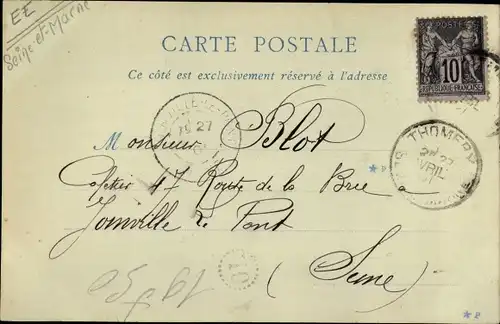 EE
Seine-et-Marne
POSTES
10
REPUBLIQUE FRANÇAISE
CARTE POSTALE
Ce côté est exclusivement réservé à l'adresse
THOMERY
27
AVRIL
27
Monsieur Blot
47 Route de la Brie
Joinville le Pont
(Seine)